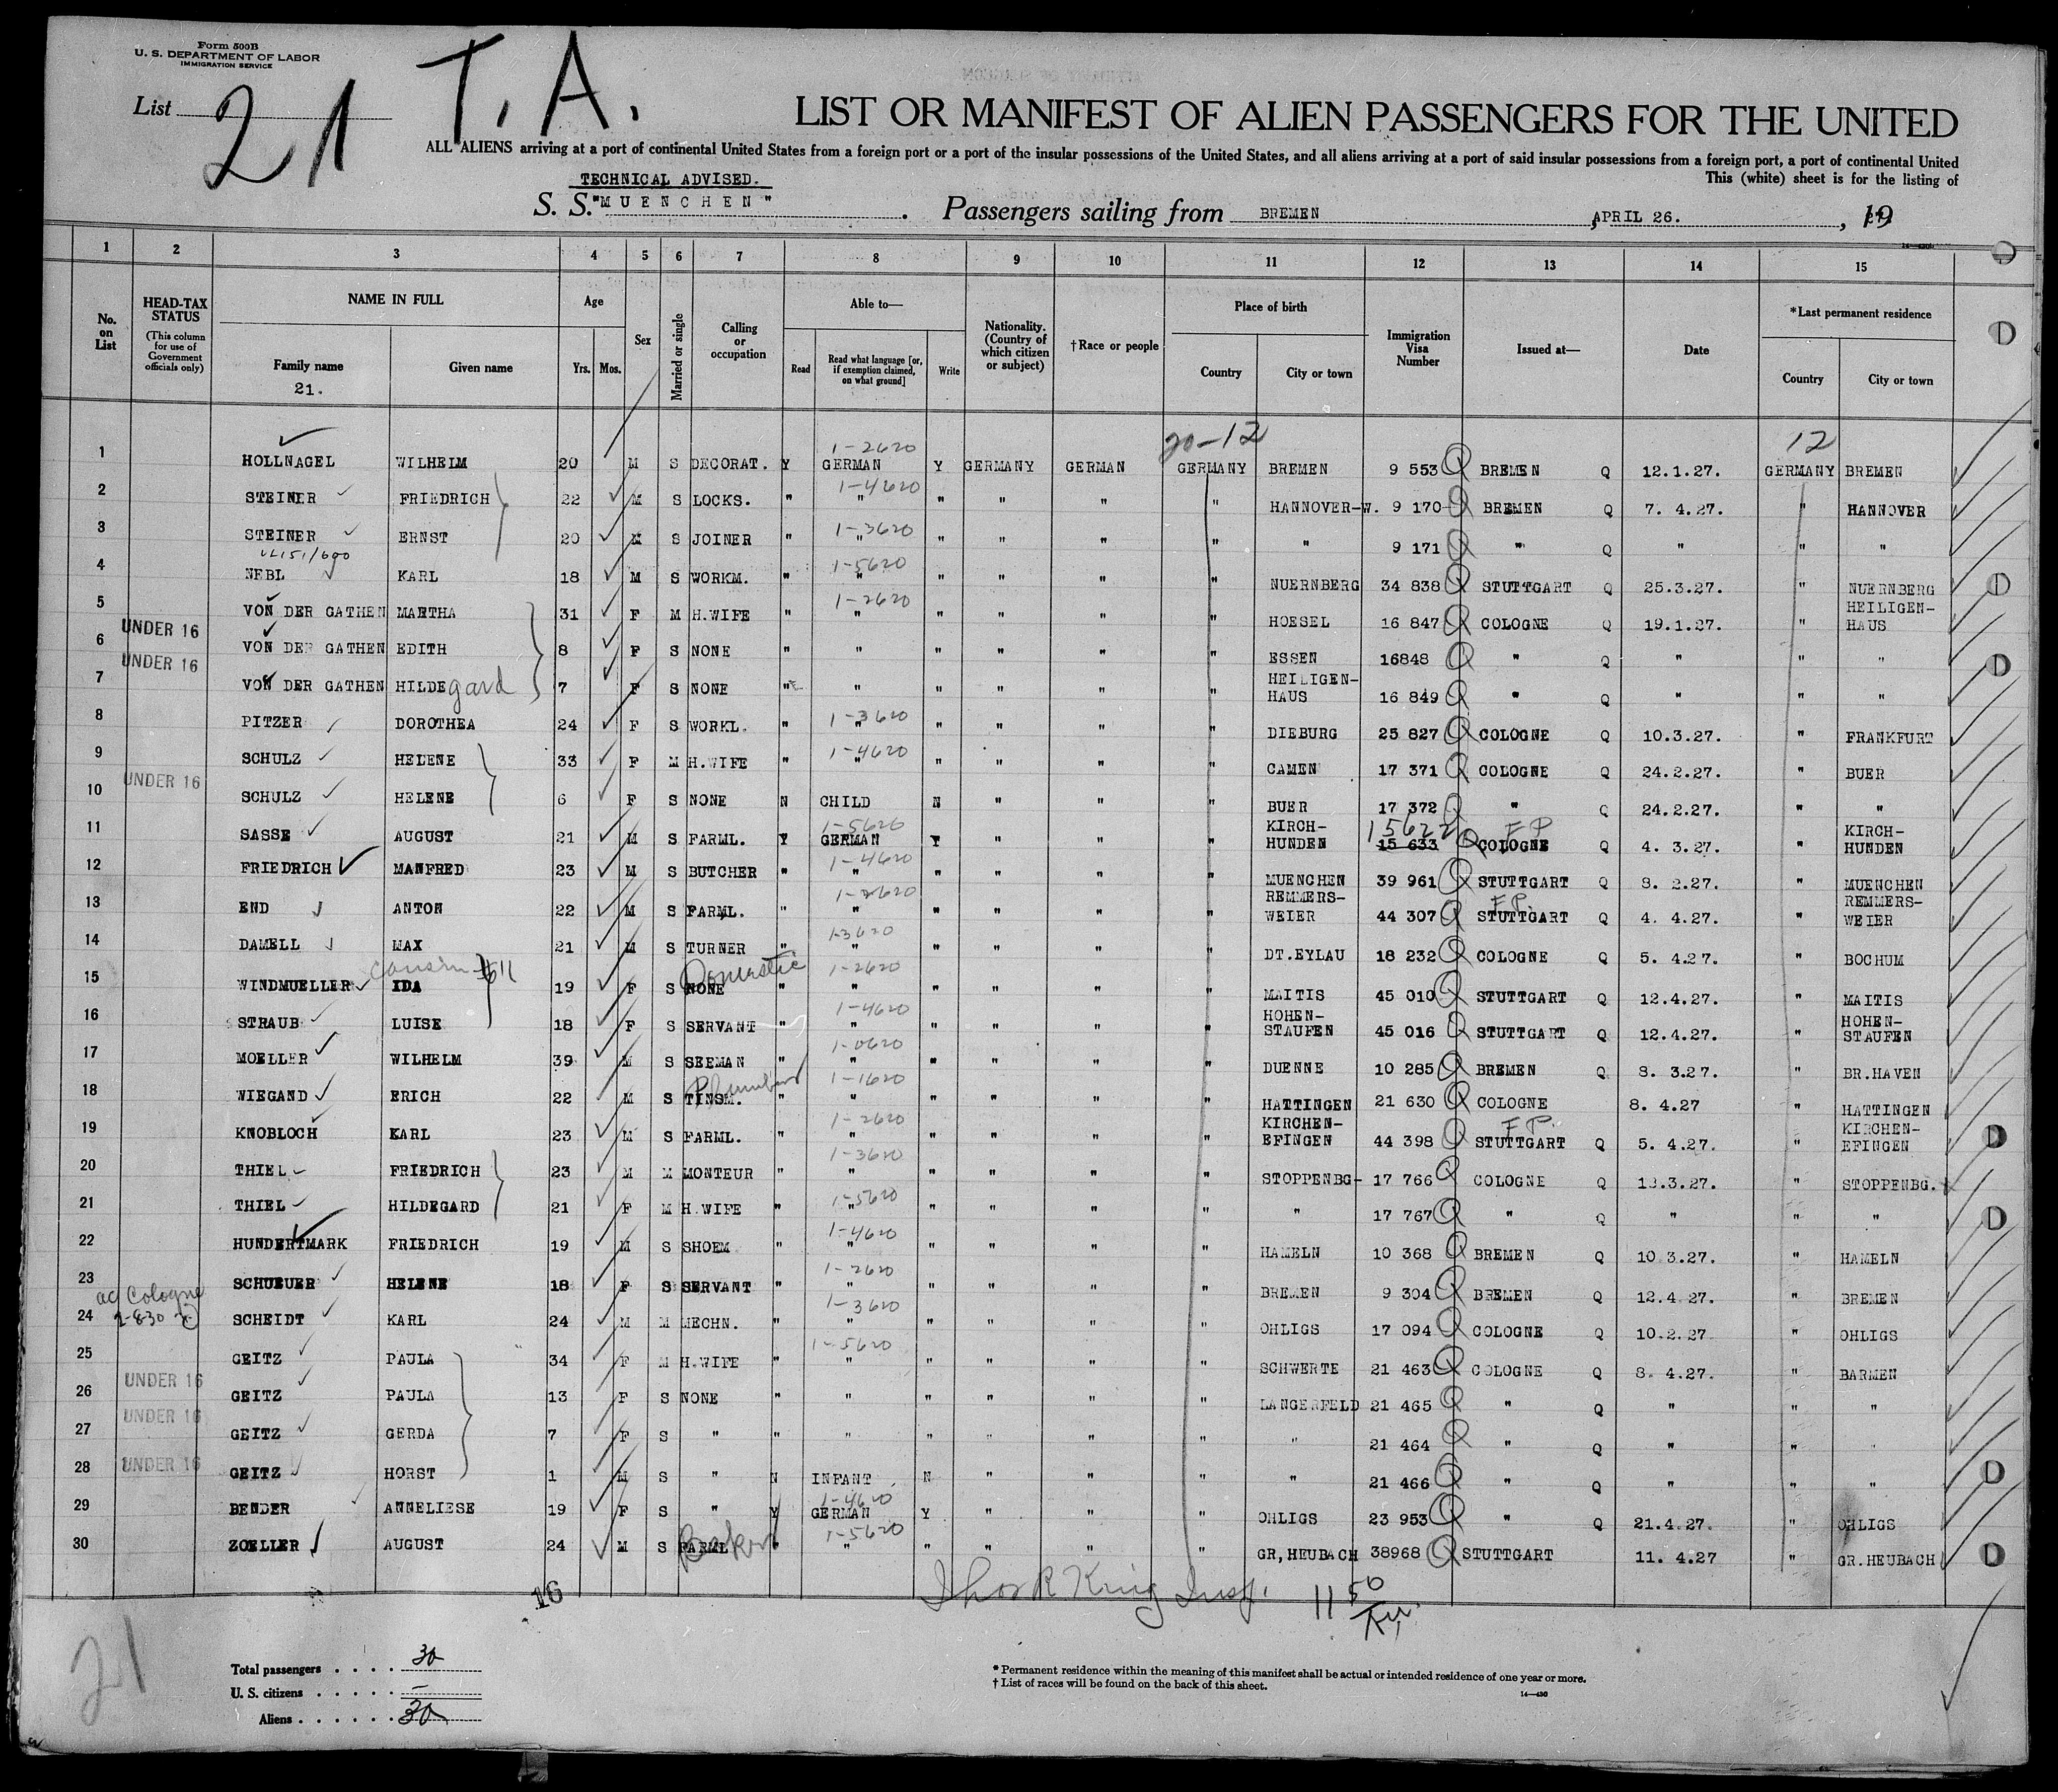 Form 500B
U. S. DEPARTMENT OF LABOR
IMMIGRATION SERVICE
List 21
T. A.
LIST OR MANIFEST OF ALIEN PASSENGERS FOR THE UNITED
ALL ALIENS arriving at a port of continental United States from a foreign port or a port of the insular possessions of the United States, and all aliens arriving at a port of said insular possessions from a foreign port, a port of continental United
This (white) sheet is for the listing of
TECHNICAL ADVISED.
S. S. "MUENCHEN". Passengers sailing from BREMEN, APRIL 26., 19
1 2 3 4 5 6 7 8 9 10 11 12 13 14 15
No. on List
HEAD-TAX STATUS (This column for use of Government officials only)
NAME IN FULL Family name Given name
21.
Age Yrs. Mos.
Sex
Married or single
Calling or occupation
Able to— Read Read what language [or, if exemption claimed, on what ground] Write
Nationality. (Country of which citizen or subject)
†Race or people
Place of birth Country City or town
Immigration Visa Number
Issued at—
Date
*Last permanent residence Country City or town
1-2620 20-12 12
1 HOLLNAGEL WILHELM 20 M S DECORAT. Y GERMAN Y GERMANY GERMAN GERMANY BREMEN 9 553 Q BREMEN Q 12.1.27. GERMANY BREMEN
1-4620
2 STEINER FRIEDRICH 22 M S LOCKS. " " " " " " HANNOVER-W. 9 170 Q BREMEN Q 7. 4.27. " HANNOVER
1-3620
3 STEINER ERNST 20 M S JOINER " " " " " " " 9 171 Q " Q " " "
1-5620
4 NEBL KARL 18 M S WORKM. " " " " " " NUERNBERG 34 838 Q STUTTGART Q 25.3.27. " NUERNBERG
1-2620
5 VON DER GATHEN MARTHA 31 F M H.WIFE " " " " " " HOESEL 16 847 Q COLOGNE Q 19.1.27. " HEILIGEN-HAUS
UNDER 16
6 VON DER GATHEN EDITH 8 F S NONE " " " " " " ESSEN 16848 Q " Q " " "
UNDER 16
7 VON DER GATHEN HILDEgard 7 F S NONE " " " " " HEILIGEN-HAUS 16 849 Q " Q " " "
1-3620
8 PITZER DOROTHEA 24 F S WORKL. " " " " " " DIEBURG 25 827 Q COLOGNE Q 10.3.27. " FRANKFURT
1-4620
9 SCHULZ HELENE 33 F M H.WIFE " " " " " " CAMEN 17 371 Q COLOGNE Q 24.2.27. " BUER
UNDER 16
10 SCHULZ HELENE 6 F S NONE N CHILD N " " " BUER 17 372 Q " Q 24.2.27. " "
1-5620 15622 FP
11 SASSE AUGUST 21 M S FARML. Y GERMAN Y " " " KIRCH-HUNDEN 15 633 Q COLOGNE Q 4. 3.27. " KIRCH-HUNDEN
1-4620
12 FRIEDRICH MANFRED 23 M S BUTCHER " " " " " " MUENCHEN 39 961 Q STUTTGART Q 8. 2.27. " MUENCHEN
1-2620 FP.
13 END ANTON 22 M S FARML. " " " " " " REMMERS-WEIER 44 307 Q STUTTGART Q 4. 4.27. " REMMERS-WEIER
1-3620
14 DAMELL MAX 21 M S TURNER " " " " " " DT.EYLAU 18 232 Q COLOGNE Q 5. 4.27. " BOCHUM
cousin Domestic 1-2620
15 WINDMUELLER IDA 19 F S NONE " " " " " " MAITIS 45 010 Q STUTTGART Q 12.4.27. " MAITIS
1-4620
16 STRAUB LUISE 18 F S SERVANT " " " " " " HOHEN-STAUFEN 45 016 Q STUTTGART Q 12.4.27. " HOHEN-STAUFEN
1-0620
17 MOELLER WILHELM 39 M S SEEMAN " " " " " " DUENNE 10 285 Q BREMEN Q 8. 3.27. " BR.HAVEN
Plumber 1-1620
18 WIEGAND ERICH 22 M S TINSM. " " " " " " HATTINGEN 21 630 Q COLOGNE 8. 4.27 " HATTINGEN
1-2620 FP.
19 KNOBLOCH KARL 23 M S FARML. " " " " " " KIRCHEN-EFINGEN 44 398 Q STUTTGART Q 5. 4.27. " KIRCHEN-EFINGEN
1-3620
20 THIEL FRIEDRICH 23 M M MONTEUR " " " " " " STOPPENBG- 17 766 Q COLOGNE Q 18.3.27. " STOPPENBG.
1-5620
21 THIEL HILDEGARD 21 F M H.WIFE " " " " " " " 17 767 Q " Q " " "
1-4620
22 HUNDERTMARK FRIEDRICH 19 M S SHOEM " " " " " " HAMELN 10 368 Q BREMEN Q 10.3.27. " HAMELN
1-2620
23 SCHUEUER HELENE 18 F S SERVANT " " " " " " BREMEN 9 304 Q BREMEN Q 12.4.27. " BREMEN
Cologne 2-8-30 1-3620
24 SCHEIDT KARL 24 M M MECHN. " " " " " " OHLIGS 17 094 Q COLOGNE Q 10.2.27 " OHLIGS
1-5620
25 GEITZ PAULA 34 F M H.WIFE " " " " " " SCHWERTE 21 463 Q COLOGNE Q 8. 4.27. " BARMEN
UNDER 16
26 GEITZ PAULA 13 F S NONE " " " " " " LANGERFELD 21 465 Q " Q " " "
UNDER 16
27 GEITZ GERDA 7 F S " " " " " " " " 21 464 Q " Q " " "
UNDER 16
28 GEITZ HORST 1 M S " N INFANT N " " " " 21 466 Q " Q " " "
1-4620
29 BENDER ANNELIESE 19 F S " Y GERMAN Y " " " OHLIGS 23 953 Q " Q 21.4.27. " OHLIGS
Baker 1-5620
30 ZOELLER AUGUST 24 M S FARML " " " " " " GR,HEUBACH 38968 Q STUTTGART 11. 4.27 " GR.HEUBACH
16
Thos R King Insp. 11 50
21
Total passengers . . . . 30
U. S. citizens . . . . . –
Aliens . . . . . . 30
* Permanent residence within the meaning of this manifest shall be actual or intended residence of one year or more.
† List of races will be found on the back of this sheet.
14—430